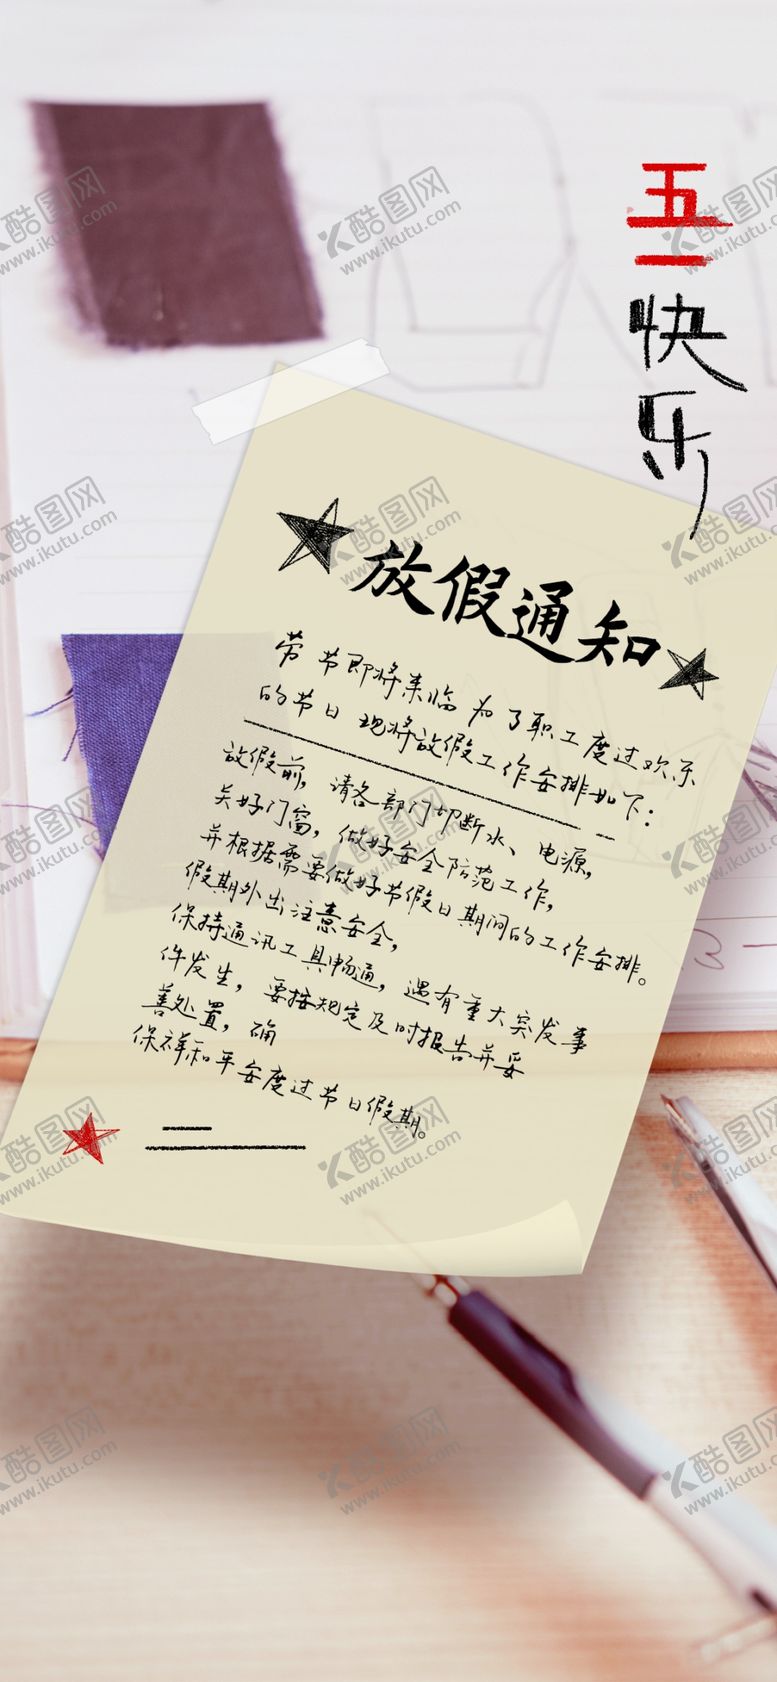 五一快乐
放假通知
劳 节即将来临 为了职工度过欢乐
的节日 现将放假工作安排如下：
放假前，请各部门切断水、电源，
关好门窗，做好安全防范工作，
并根据需要做好节假日期间的工作安排。
假期外出注意安全，
保持通讯工具畅通，遇有重大突发事
件发生，要按规定及时报告并妥
善处置，确
保祥和平安度过节日假期。
酷图网
www.ikutu.com